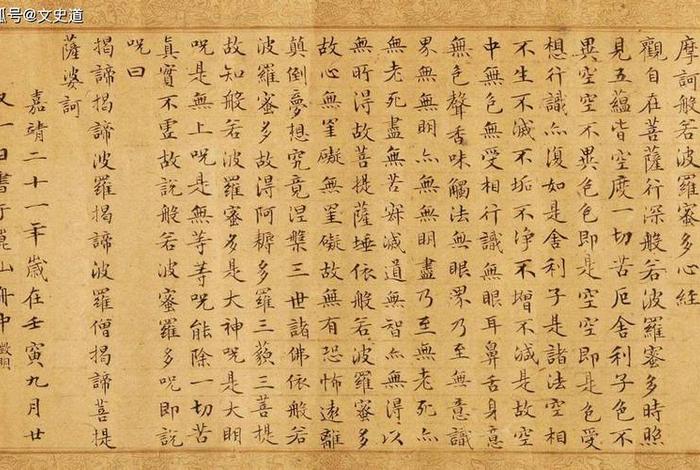 狐号@文史道
摩訶般若波羅蜜多心經
觀自在菩薩行深般若波羅蜜多時照
見五蘊皆空度一切苦厄舍利子色不
異空空不異色色即是空空即是色受
想行識亦復如是舍利子是諸法空相
不生不滅不垢不淨不增不減是故空
中無色無受相行識無眼耳鼻舌身意
無色聲香味觸法無眼界乃至無意識
界無無明亦無無明盡乃至無老死亦
無老死盡無苦寂滅道無智亦無得以
無所得故菩提薩埵依般若波羅蜜多
故心無罣礙無罣礙故無有恐怖遠離
顛倒夢想究竟涅槃三世諸佛依般若
波羅蜜多故得阿耨多羅三藐三菩提
故知般若波羅蜜多是大神呪是大明
呪是無上呪是無等等呪能除一切苦
真實不虛故說般若波蜜羅多呪即說
呪曰
揭諦揭諦波羅揭諦波羅僧揭諦菩提
薩婆訶
嘉靖二十一年歲在壬寅九月廿
又一日書于崑山舟中 徵明